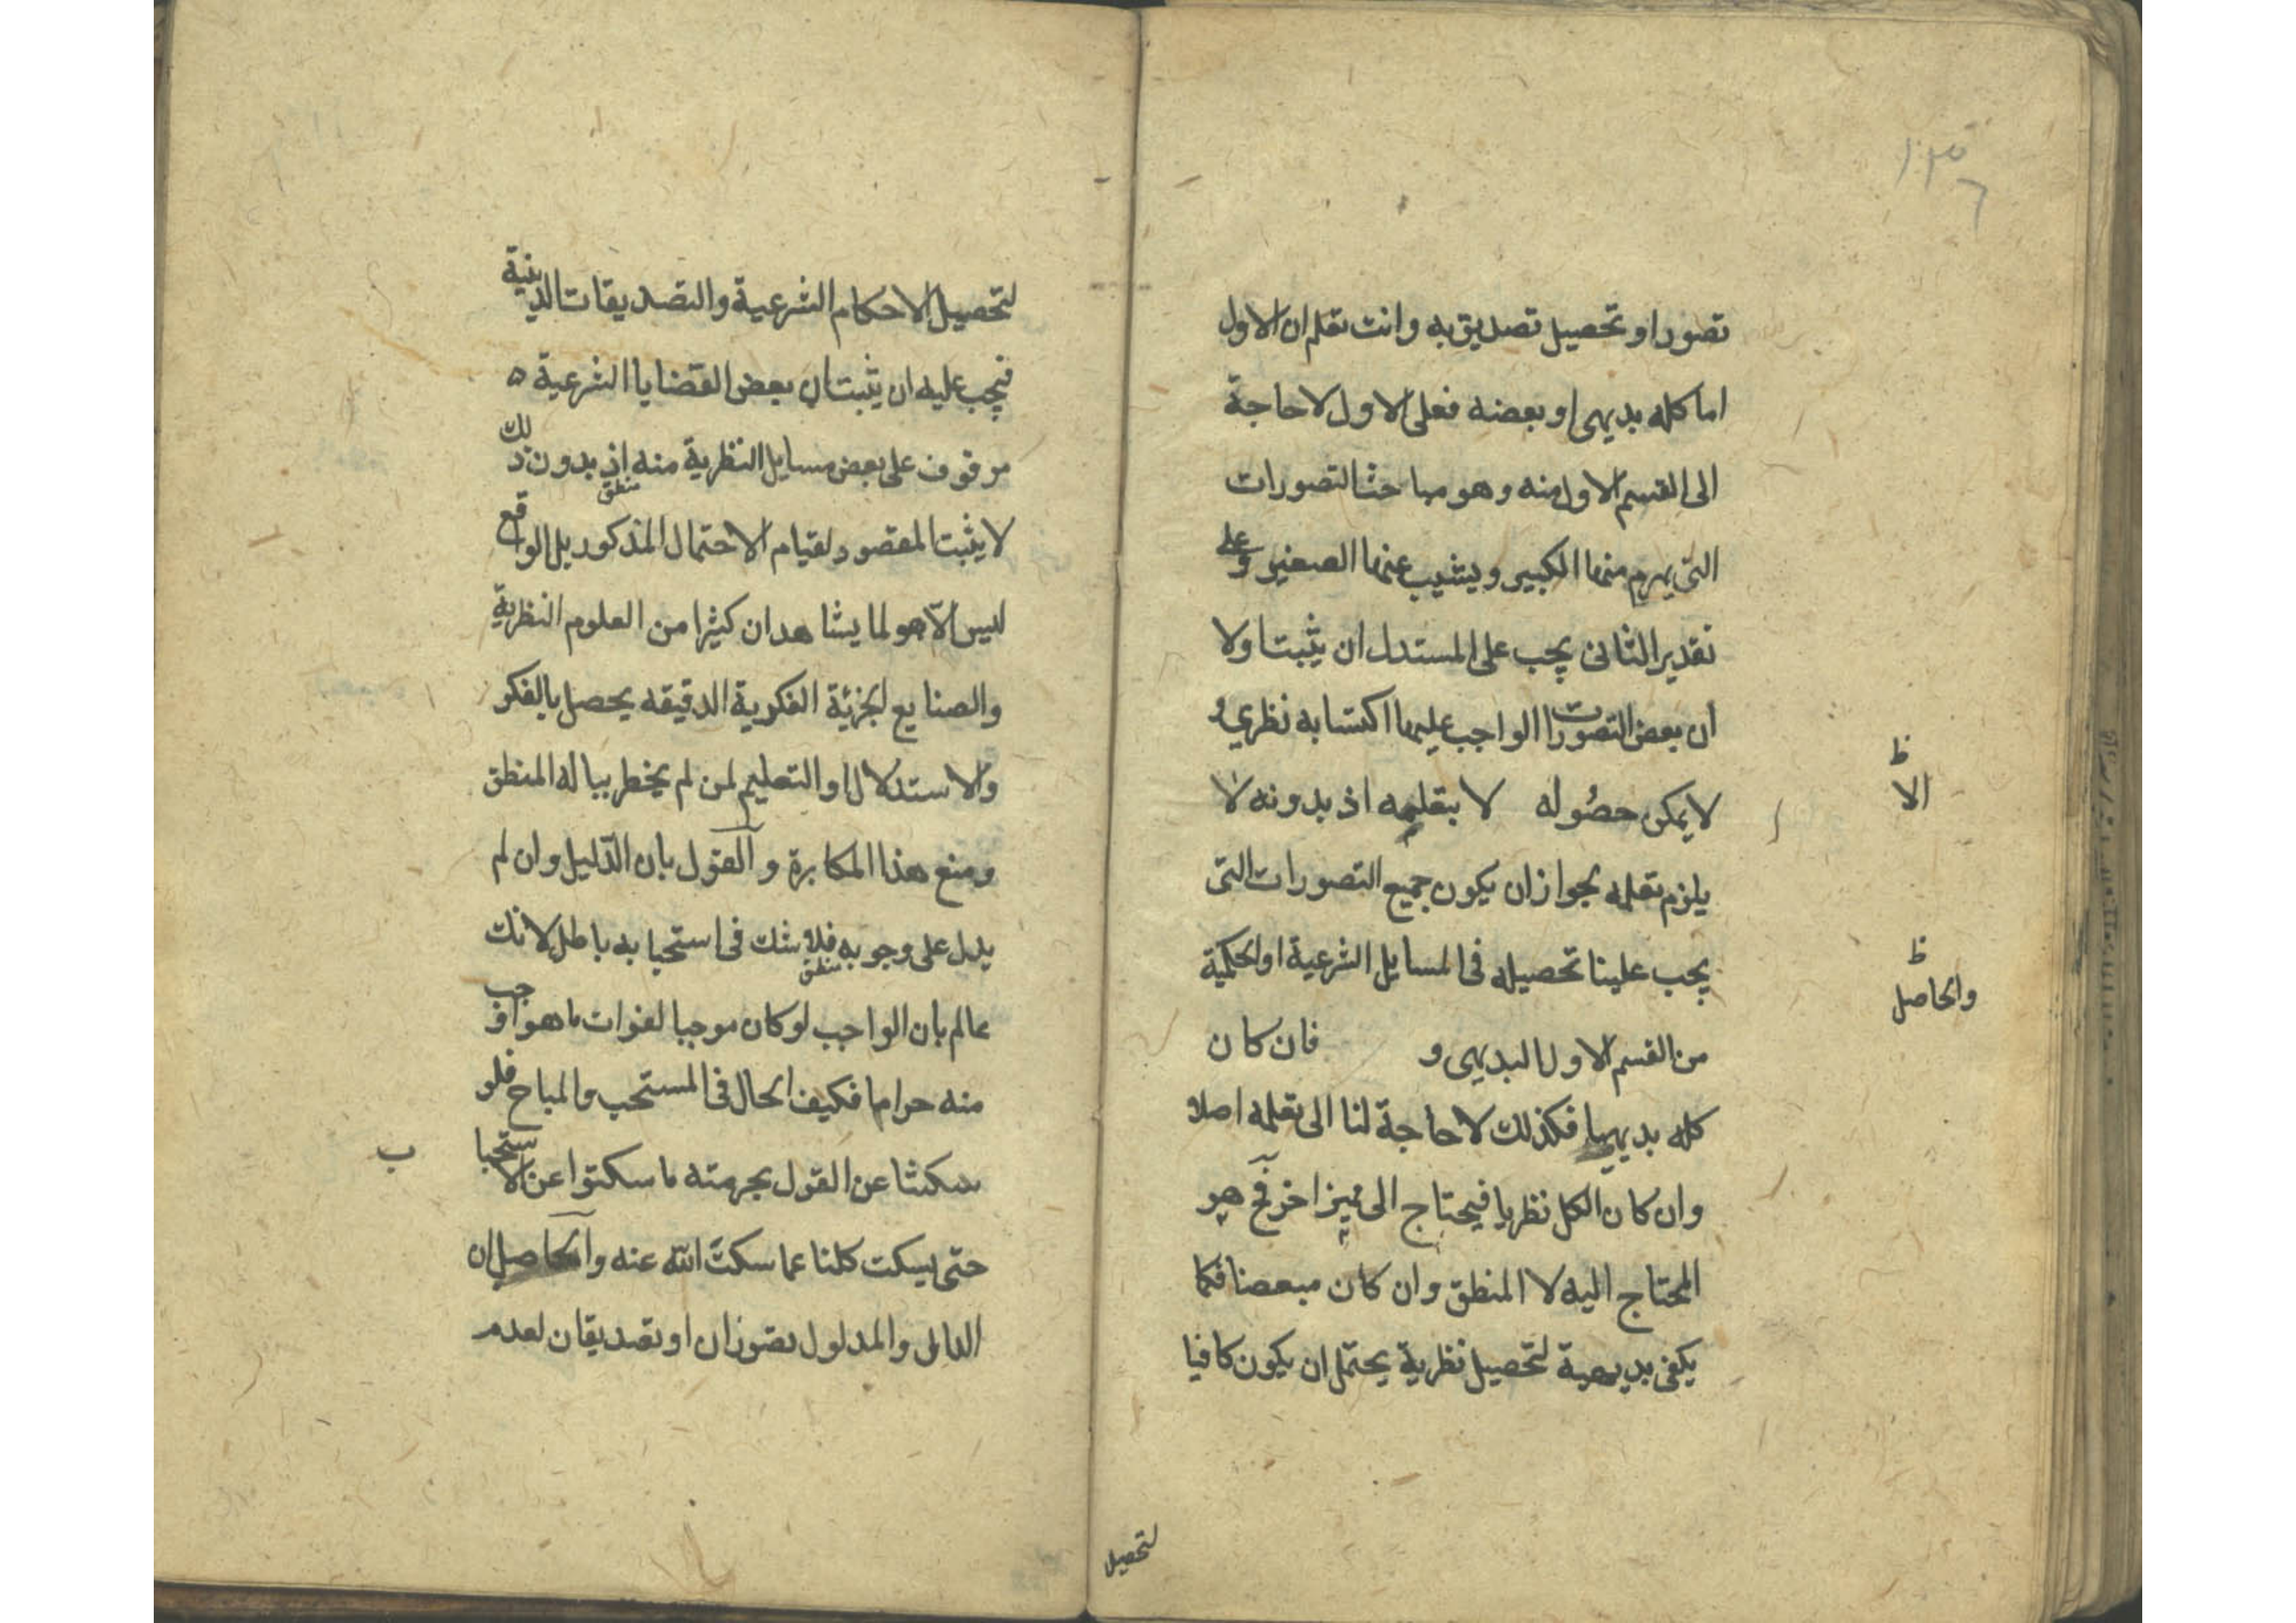 تصور او تحصيل تصديق به وانت تعلم ان الاول
اما كله بديهى او بعضه فعلى الاول لا حاجة
الى القسم الاول منه وهو مباحث التصورات
التى يهرم منها الكبير ويشيب عنها الصغير وعلى
تقدير الثانى يجب على المستدل ان يثبت اولا
ان بعض التصورات الواجب عليها اكتسابه نظري و
لا يمكن حصُوله لا بتعلمه اذ بدونه لا
الا
ظ
يلزم تعلمه لجواز ان يكون جميع التصورات التى
يجب علينا تحصيله فى المسايل الشرعية او الحكمية
من القسم الاول البديهى و فان كان
والحاصل
ظ
كله بديهيا فكذلك لا حاجة لنا الى تعلمه اصلا
وان كان الكل نظريا فيحتاج الى مميز اخر فح هو
المحتاج اليه لا المنطق وان كان مبعضا فكما
يكفى بديهية لتحصيل نظرية يحتمل ان يكون كافيا
لتحصيل
لتحصيل الاحكام الشرعية والتصديقات الدينية
فيجب عليه ان يثبت ان بعض القضايا الشرعية ه
موقوف على بعض مسايل النظرية منه اذ بدون ذلك
منطق
لا يثبت المقصود لقيام الاحتمال المذكور بل الواقع
ليس الّا هو لما يشاهد ان كثيرا من العلوم النظرية
والصنايع الجزئية الفكرية الدقيقه يحصل بالفكر
والاستدلال او التعليم لمن لم يخطر بباله المنطق
ومنع هذا المكابرة والقول بان الدّليل وان لم
يدل على وجوبه فلا شك فى استحبابه باطل لانك
منطق
عالم بان الواجب لو كان موجبا لفوات ما هو اوجب
منه حراما فكيف الحال فى المستحب والمباح فلو
سكتنا عن القول بحرمته ما سكتوا عن الاستحبا
ب
حتى يسكت كلنا عما سكتَ الله عنه والحاصل ان
الدال والمدلول تصوران او تصديقان لعدم